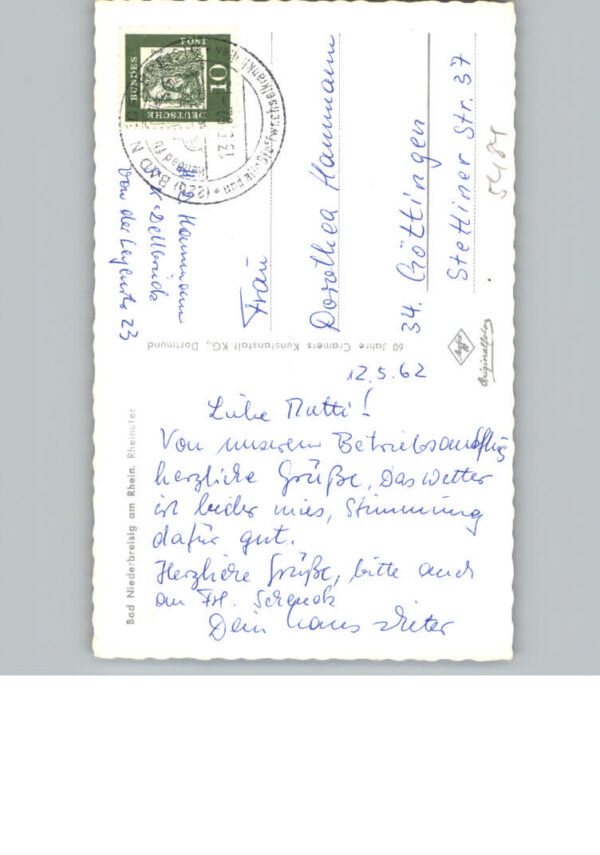 12.5.62
Liebe Mutti!
Von unserem Betriebsausflug
herzliche Grüße, Das Wetter
ist leider mies, Stimmung
dafür gut.
Herzliche Grüße, bitte auch
an Frl. Schenck
Dein Hans Dieter
Bad Niederbreisig am Rhein. Rheinufer
60 Jahre Cramers Kunstanstalt KG., Dortmund
Agfa
Originalfoto
DEUTSCHE
BUNDES
POST
10
(22b) BAD N
Hammann
Dellbrück
Von der Leyenstr 23
Frau
Dorothea Hammann
34. Göttingen
Stettiner Str. 37
5484